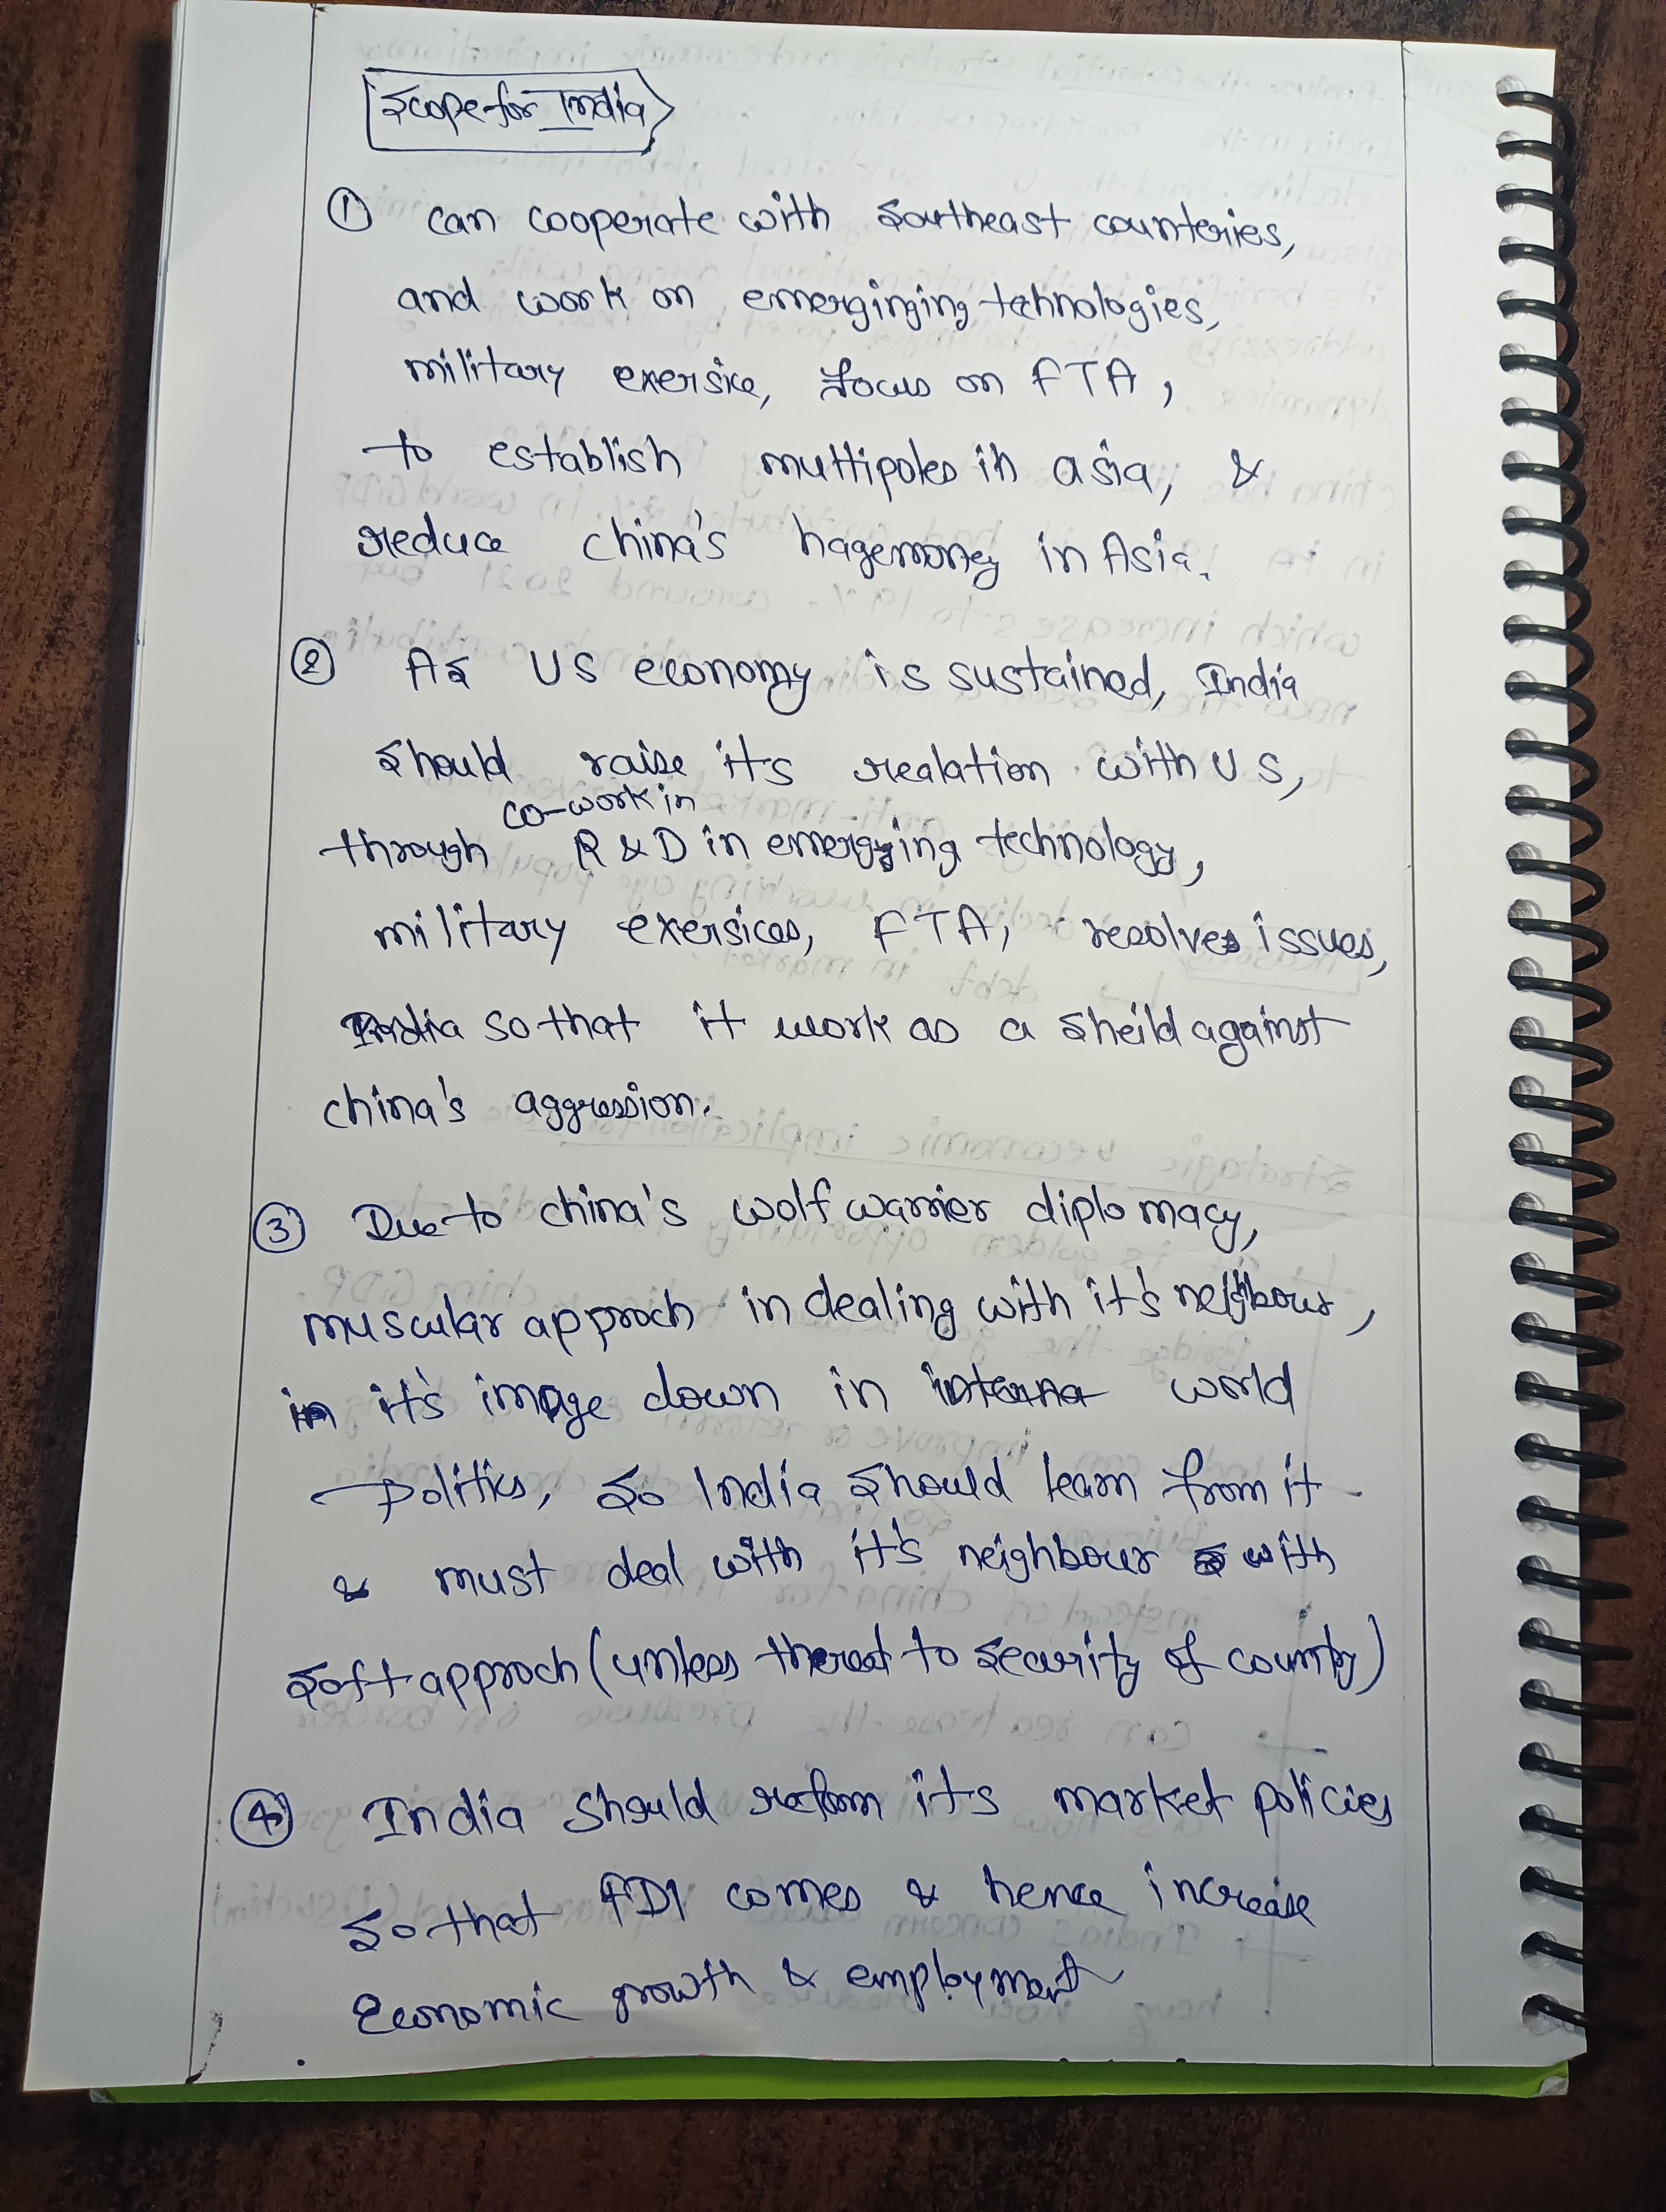 Scope for India
① can cooperate with Southeast counteries,
and work on emerginging technologies,
military exersice, focus on FTA,
to establish multipoles in asia, &
reduce china's hagemoney in Asia.
② As US economy is sustained, India
should raise it's realation with US,
co-work in
through R & D in emerging technology,
military exersices, FTA, resolves issues,
India so that it work as a sheild against
china's aggression.
③ Due to china's wolf warrier diplomacy,
muscular approch in dealing with it's neighbour,
in it's image down in interna world
politics, So India should learn from it
& must deal with it's neighbour with
soft approch (unless thereat to security of country)
④ India should reform it's market policies
so that FDI comes & hence increase
Economic growth & employment